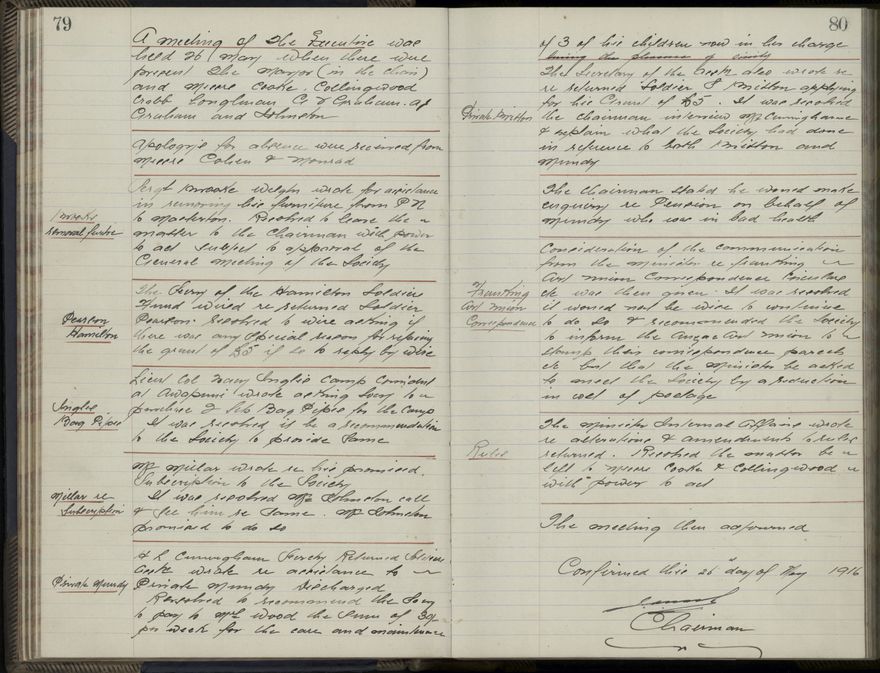 79
A meeting of the Executive was
held 26 May when there were
present The Mayor (in the chair)
and Messrs Cooke. Collingwood
Crabb Longlman G. & Graham. A J
Graham and Johnston
Apologys for absence were received from
Messrs Cohen & Monrad
Brooke
removal furtre
Sergt Brooke Weighs wrote for assistance
in removing his furniture from P.N.
to Masterton. Resolved to leave the
matter to the Chairman with power
to act subject to approval of the
General meeting of the Society
Pearson
Hamilton
The Secy of the Hamilton Soldiers
Fund wired re returned Soldier
Pearson. Resolved to wire asking if
there was any special reason for refusing
the grant of £5 if so to reply by wire
Inglis
Bag Pipes
Lieut Col Inglis Camp Comdant
at Awapuni wrote asking Socy to
purchase 2 Sets Bag Pipes for the Camp
It was resolved it be a recommendation
to the Society to provide same
Millar re
Subscription
Mr Millar wrote re his promised
Subscription to the Society
It was resolved Mr Johnston call
& see him re same. Mr Johnston
promised to do so
Private Mundy
Cunningham Secrety Returned Soldiers
wrote re assistance to
Private Mundy discharged
Resolved to recommend the Socy
to pay to Mrs Wood the sum of 30/-
per week for the care and maintenance
80
of 3 of his children now in her charge
Private Britton
The Secretary of the also wrote
re returned Soldier Britton applying
for his Grant of £5. It was resolved
the chairman interview Mr Cunninghame
& explain what the Society had done
in reference to both Britton and
Mundy
The Chairman stated he would make
enquiry re Pension on behalf of
Mundy who was in bad health
Franking
and Union
Correspondence
Consideration of the communication
from the Minister re franking
and Union Correspondence
etc was then given. It was resolved
it would not be wise to continue
to do so & recommended the Society
to inform the and Union to
stamp their correspondence parcels
etc but that the Minister be asked
to meet the Society by a reduction
in cost of postage
Rules
The Minister Internal Affairs wrote
re alterations & amendments to rules
returned. Resolved the matter be
left to Messrs Cooke & Collingwood
with power to act
The meeting then adjourned
Confirmed this 26 day of May 1916
Chairman